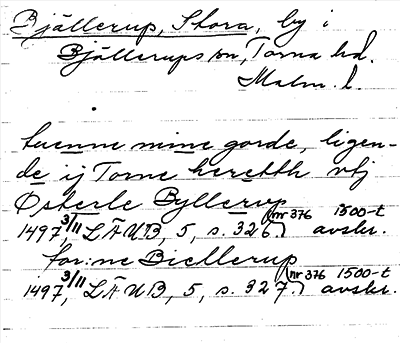 Bjällerup, Stora, by i
Bjällerups sn, Torna hd.
Malm. l.
tuenne mine gorde, ligen-
de ij Torne heretth vtj
Østerle Byllerup
1497 3/11, LÄUB, 5, s. 326. (nr 376 1500-t avskr.)
for:ne Biellerup
1497 3/11, LÄUB, 5, s. 327. (nr 376 1500-t avskr.)